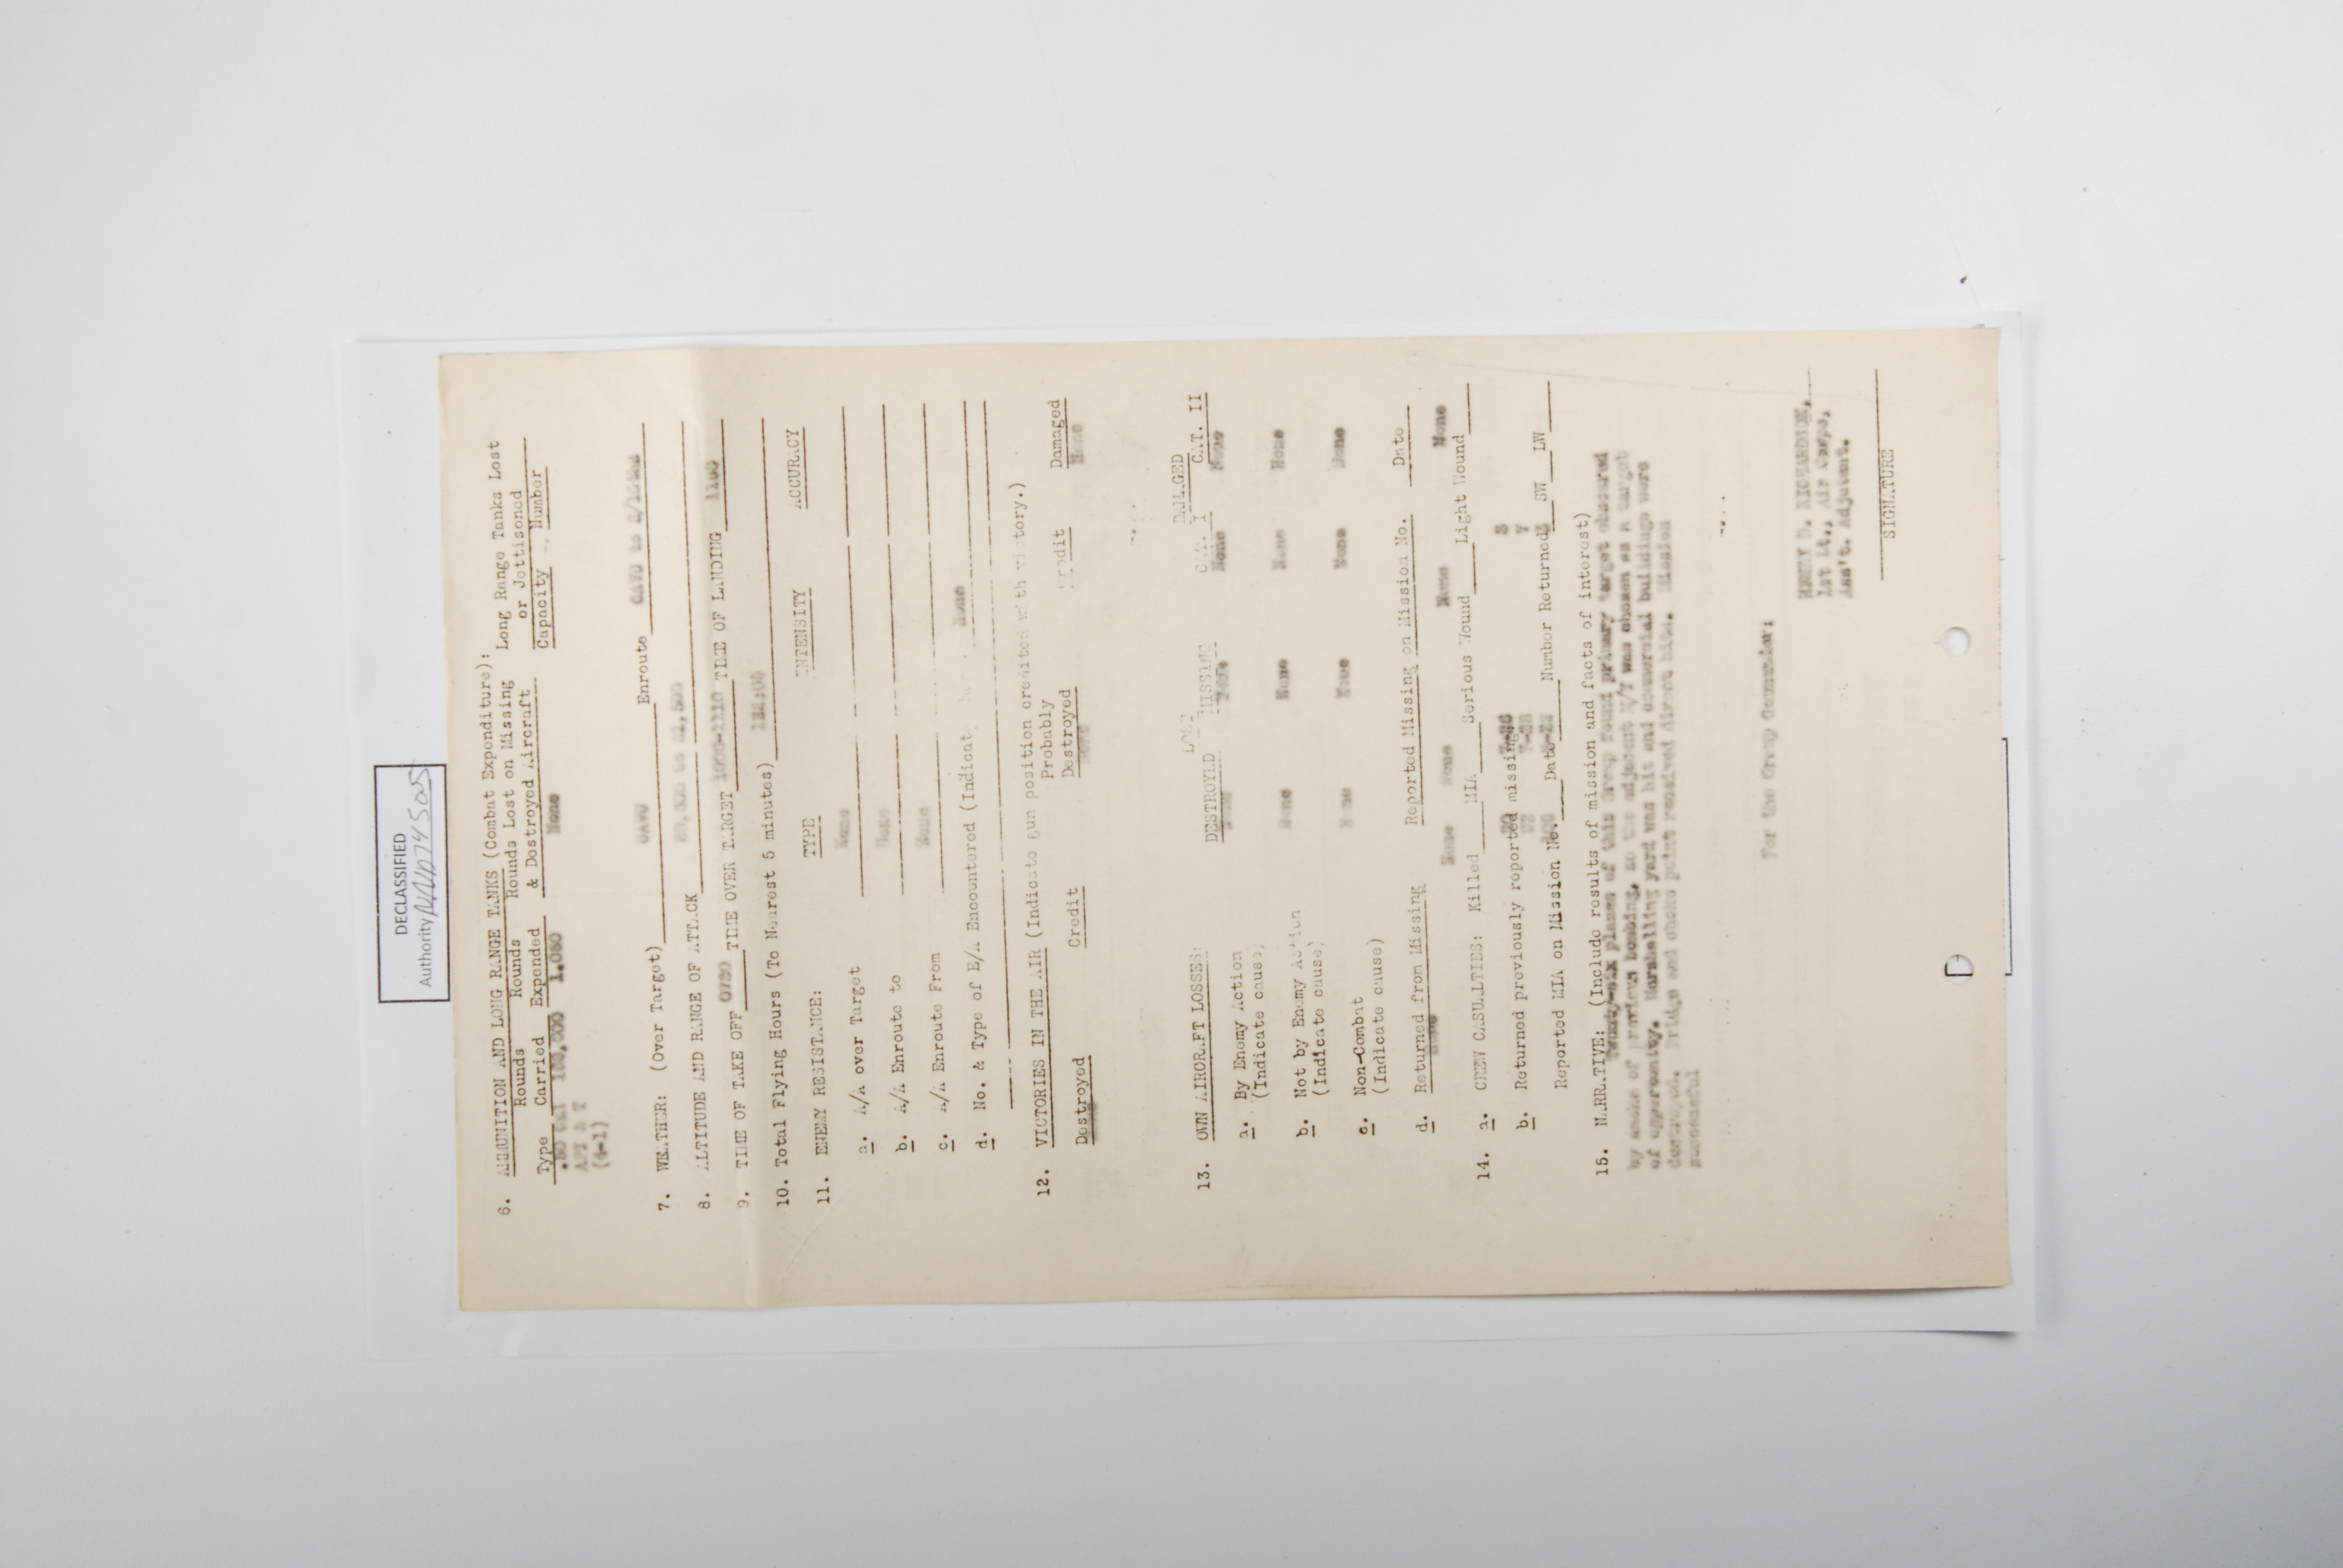 DECLASSIFIED
Authority
6. AMMUNITION AND LONG RANGE TANKS (Combat Expenditure):
Rounds Rounds Rounds Lost on Missing Long Range Tanks Lost
or Jettisoned
Type Carried Expended & Destroyed Aircraft Capacity Number
.50 Cal 1,060 None
API & T
(4-1)
7. WEATHER: (Over Target) CAVU Enroute CAVU to 2/10ths
8. ALTITUDE AND RANGE OF ATTACK
9. TIME OF TAKE OFF 0730 TIME OVER TARGET TIME OF LANDING
10. Total Flying Hours (To Nearest 5 minutes)
11. ENEMY RESISTANCE: TYPE INTENSITY ACCURACY
a. A/A over Target None
b. A/A Enroute to None
c. A/A Enroute From None
d. No. & Type of E/A Encountered (Indicate None
12. VICTORIES IN THE AIR (Indicate gun position credited with victory.)
Probably
Destroyed Credit Destroyed Credit Damaged
None
13. OWN AIRCRAFT LOSSES: LOST DAMAGED
DESTROYED MISSING CAT. I CAT. II
None None
a. By Enemy Action
(Indicate cause) None None None None
b. Not by Enemy Action
(Indicate cause) None None None None
c. Non-Combat
(Indicate cause)
d. Returned from Missing Reported Missing on Mission No. Date
None
14. a. CREW CASUALTIES: Killed None MIA None Serious Wound None Light Wound None
b. Returned previously reported missing: 3
7
Reported MIA on Mission No. Date Number Returned SW LW
15. NARRATIVE: (Include results of mission and facts of interest)
Twenty-six planes of this Group found primary target obscured
by smoke of previous bombing, so the adjacent M/Y was chosen as a target
of opportunity. Marshalling yard was hit and commercial buildings were
destroyed. Bridge and choke point received direct hits. Mission
successful
For the Group Commander:
HENRY D. RICHARDSON,
1st Lt., Air Corps,
Ass't. Adjutant.
SIGNATURE